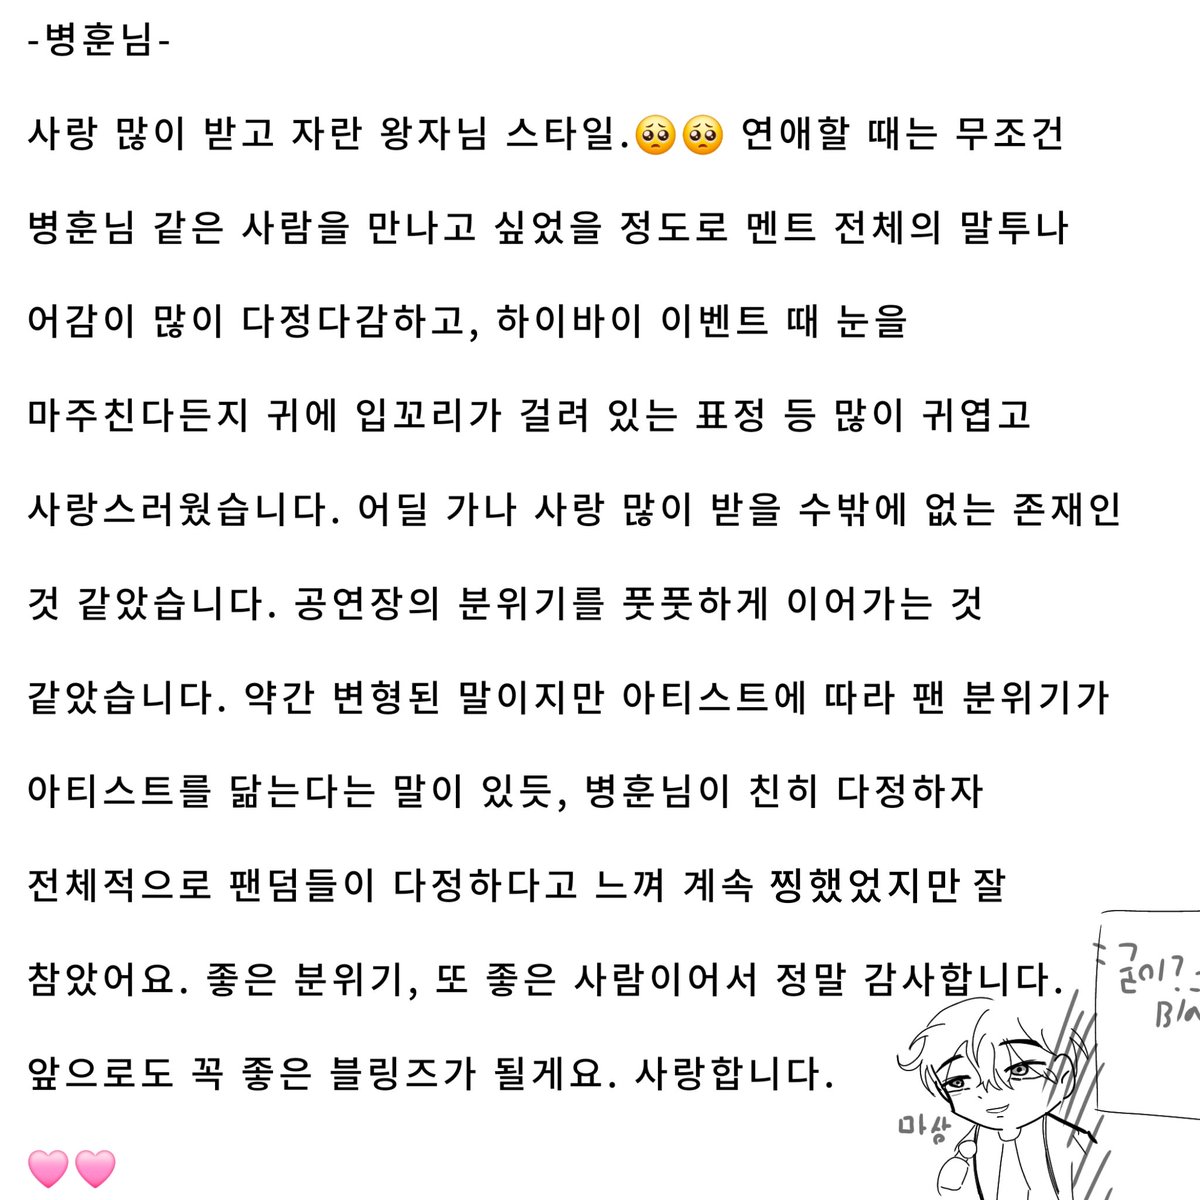 -병훈님-
사랑 많이 받고 자란 왕자님 스타일.🥺🥺 연애할 때는 무조건
병훈님 같은 사람을 만나고 싶었을 정도로 멘트 전체의 말투나
어감이 많이 다정다감하고, 하이바이 이벤트 때 눈을
마주친다든지 귀에 입꼬리가 걸려 있는 표정 등 많이 귀엽고
사랑스러웠습니다. 어딜 가나 사랑 많이 받을 수밖에 없는 존재인
것 같았습니다. 공연장의 분위기를 풋풋하게 이어가는 것
같았습니다. 약간 변형된 말이지만 아티스트에 따라 팬 분위기가
아티스트를 닮는다는 말이 있듯, 병훈님이 친히 다정하자
전체적으로 팬덤들이 다정하다고 느껴 계속 찡했었지만 잘
참았어요. 좋은 분위기, 또 좋은 사람이어서 정말 감사합니다.
앞으로도 꼭 좋은 블링즈가 될게요. 사랑합니다.
🩷🩷
마상